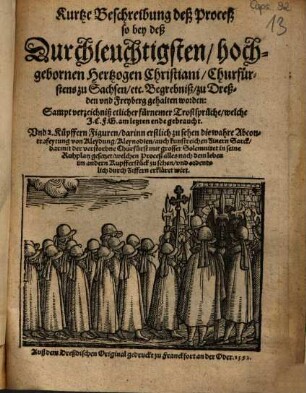 Caps. 82
13
Kurtze Beschreibung deß Proceß
so bey deß
Durchleuchtigsten/ hoch-
gebornen Hertzogen Christiani/ Churfür-
stens zu Sachsen/ etc. Begrebniß/ zu Dreß-
den und Freyberg gehalten worden:
Sampt verzeichniß etlicher fürnemer Trostsprüche/ welche
J. C. F. G. am letzten ende gebraucht.
Und 2. Küpffern Figuren/ darinn erstlich zu sehen die wahre Abcon-
trafeytung von Kleydung/ Kleynodien/ auch kunstreichen Sarck/
darmit der verstorbne Churfürst mit grosser Solennitet in seine
geseßet/ welchen Proceß alles nach dem leben
im andern Kupfferstück zu sehen/ und ordent-
lich durch Ziffern erkläret wirt.
Auß dem Dreßdischen Original gedruckt zu Franckfort an der Oder. 1592.